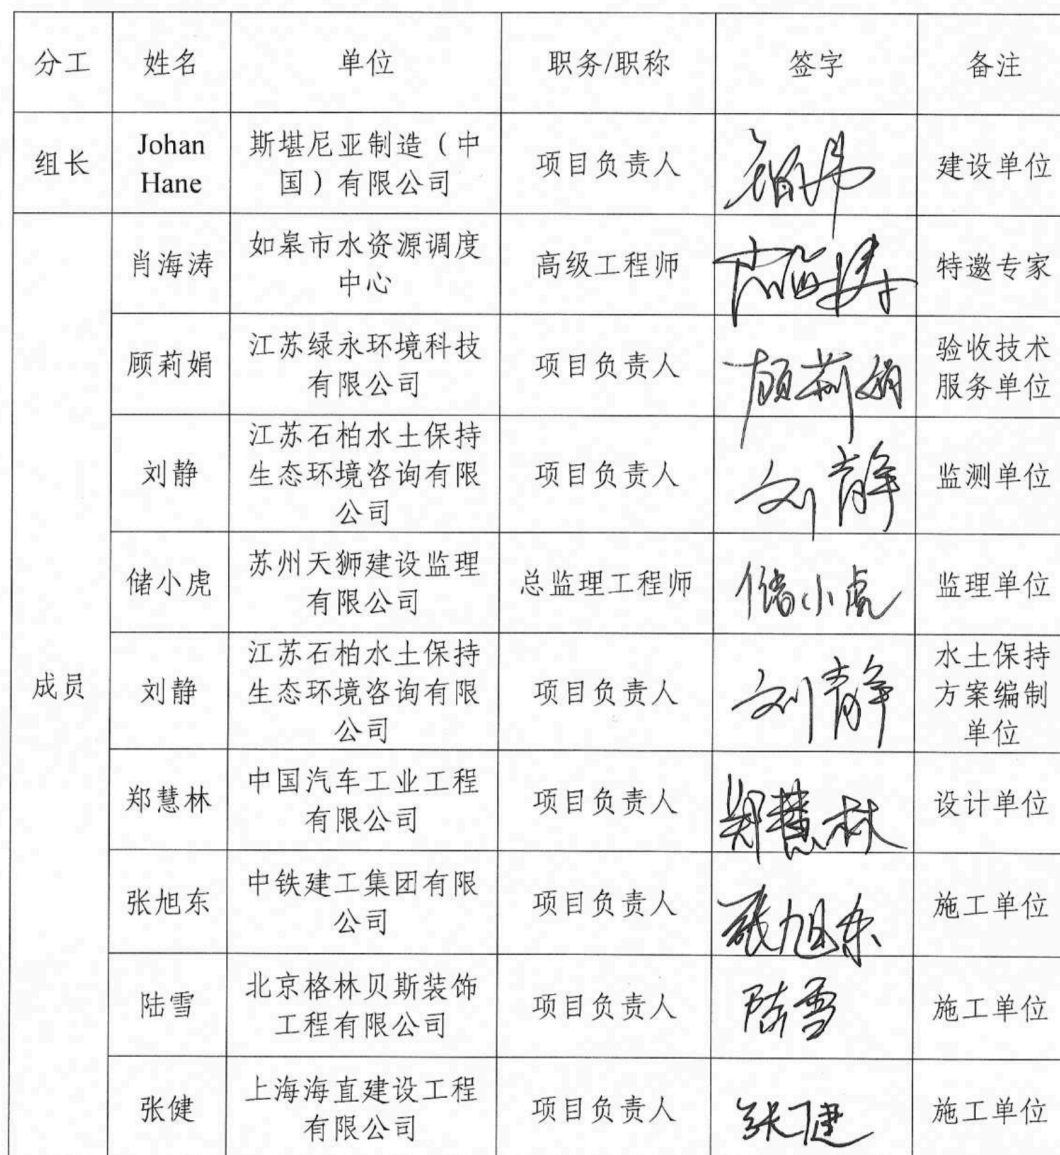 分工 姓名 单位 职务/职称 签字 备注
组长
Johan
Hane
斯堪尼亚制造（中
国）有限公司
项目负责人
建设单位
成员
肖海涛
如皋市水资源调度
中心
高级工程师
肖海涛
特邀专家
顾莉娟
江苏绿永环境科技
有限公司
项目负责人
顾莉娟
验收技术
服务单位
刘静
江苏石柏水土保持
生态环境咨询有限
公司
项目负责人
刘静
监测单位
储小虎
苏州天狮建设监理
有限公司
总监理工程师
储小虎
监理单位
刘静
江苏石柏水土保持
生态环境咨询有限
公司
项目负责人
刘静
水土保持
方案编制
单位
郑慧林
中国汽车工业工程
有限公司
项目负责人
郑慧林
设计单位
张旭东
中铁建工集团有限
公司
项目负责人
张旭东
施工单位
陆雪
北京格林贝斯装饰
工程有限公司
项目负责人
陆雪
施工单位
张健
上海海直建设工程
有限公司
项目负责人
张健
施工单位